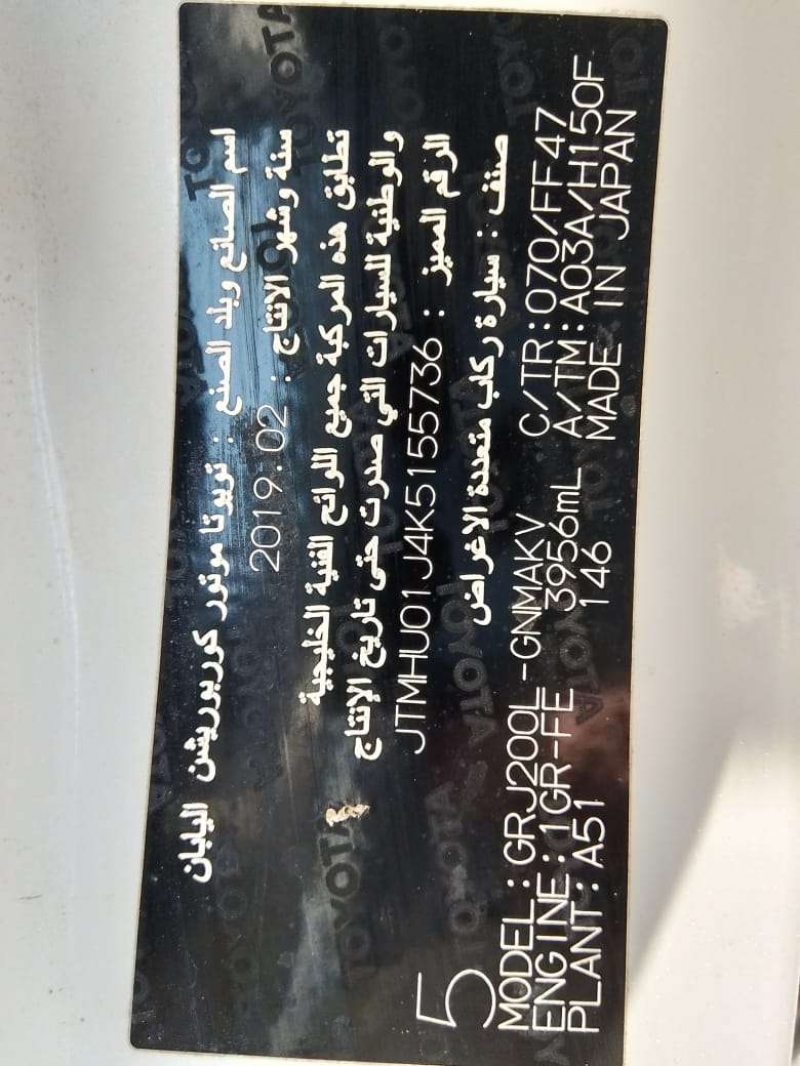 اسم الصانع وبلد الصنع : تويوتا موتور كوربوريشن اليابان
سنة وشهر الانتاج : 2019.02
تطابق هذه المركبة جميع اللوائح الفنية الخليجية
والوطنية للسيارات التي صدرت حتى تاريخ الإنتاج
الرقم المميز : JTMHU01J4K5155736
صنف : سيارة ركاب متعددة الاغراض
5
MODEL : GRJ200L-GNMAKV C/TR:070/FF47
ENGINE : 1GR-FE 3956mL A/TM:A03A/H150F
PLANT : A51 146 MADE IN JAPAN